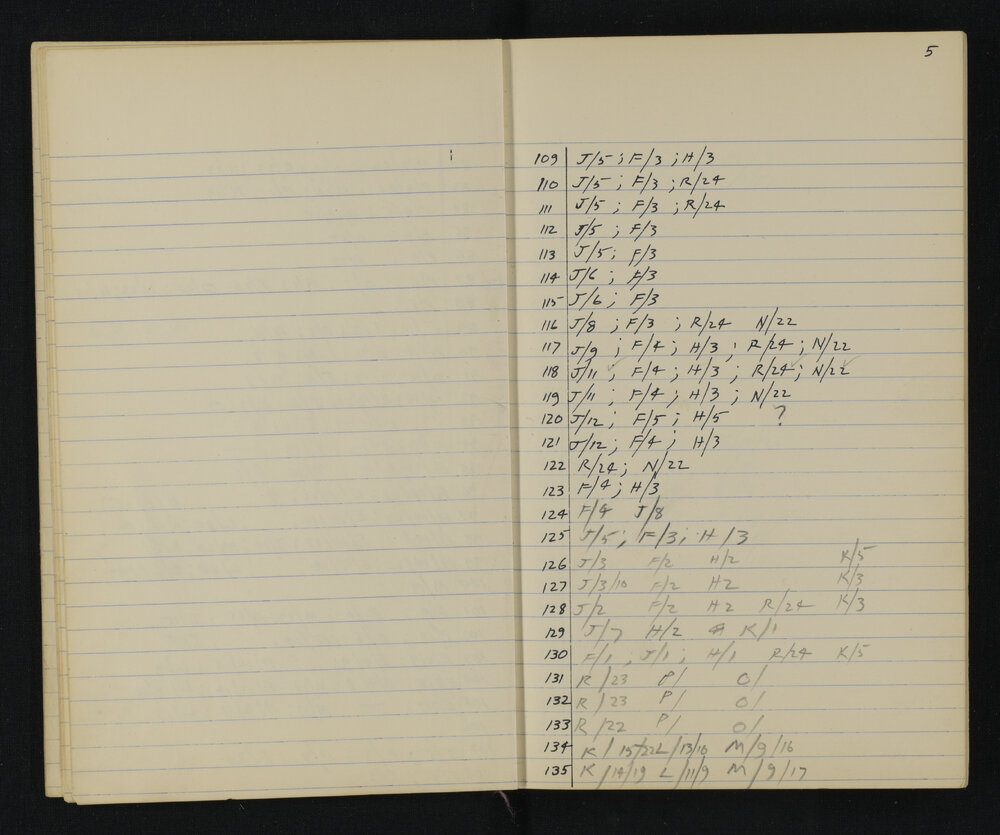 5
109 J/5 ; F/3 ; H/3
110 J/5 ; F/3 ; R/24
111 J/5 ; F/3 ; R/24
112 J/5 ; F/3
113 J/5 ; F/3
114 J/6 ; F/3
115 J/6 ; F/3
116 J/8 ; F/3 ; R/24 N/22
117 J/9 ; F/4 ; H/3 ; R/24 ; N/22
118 J/11 ; F/4 ; H/3 ; R/24 ; N/22
119 J/11 ; F/4 ; H/3 ; N/22
120 J/12 ; F/5 ; H/5 ?
121 J/12 ; F/4 ; H/3
122 R/24 ; N/22
123 F/4 ; H/3
124 F/4 J/8
125 J/5 , F/3 ; H/3
126 J/3 F/2 H/2 K/5
127 J/3/10 F/2 H2 K/3
128 J/2 F/2 H2 R/24 K/3
129 J/7 H/2 K/1
130 F/1 ; J/1 ; H/1 R/24 K/5
131 R/23 P/ O/
132 R/23 P/ O/
133 R/22 P/ O/
134 K/15/22 L/13/10 M/9/16
135 K/14/19 L/11/9 M/9/17